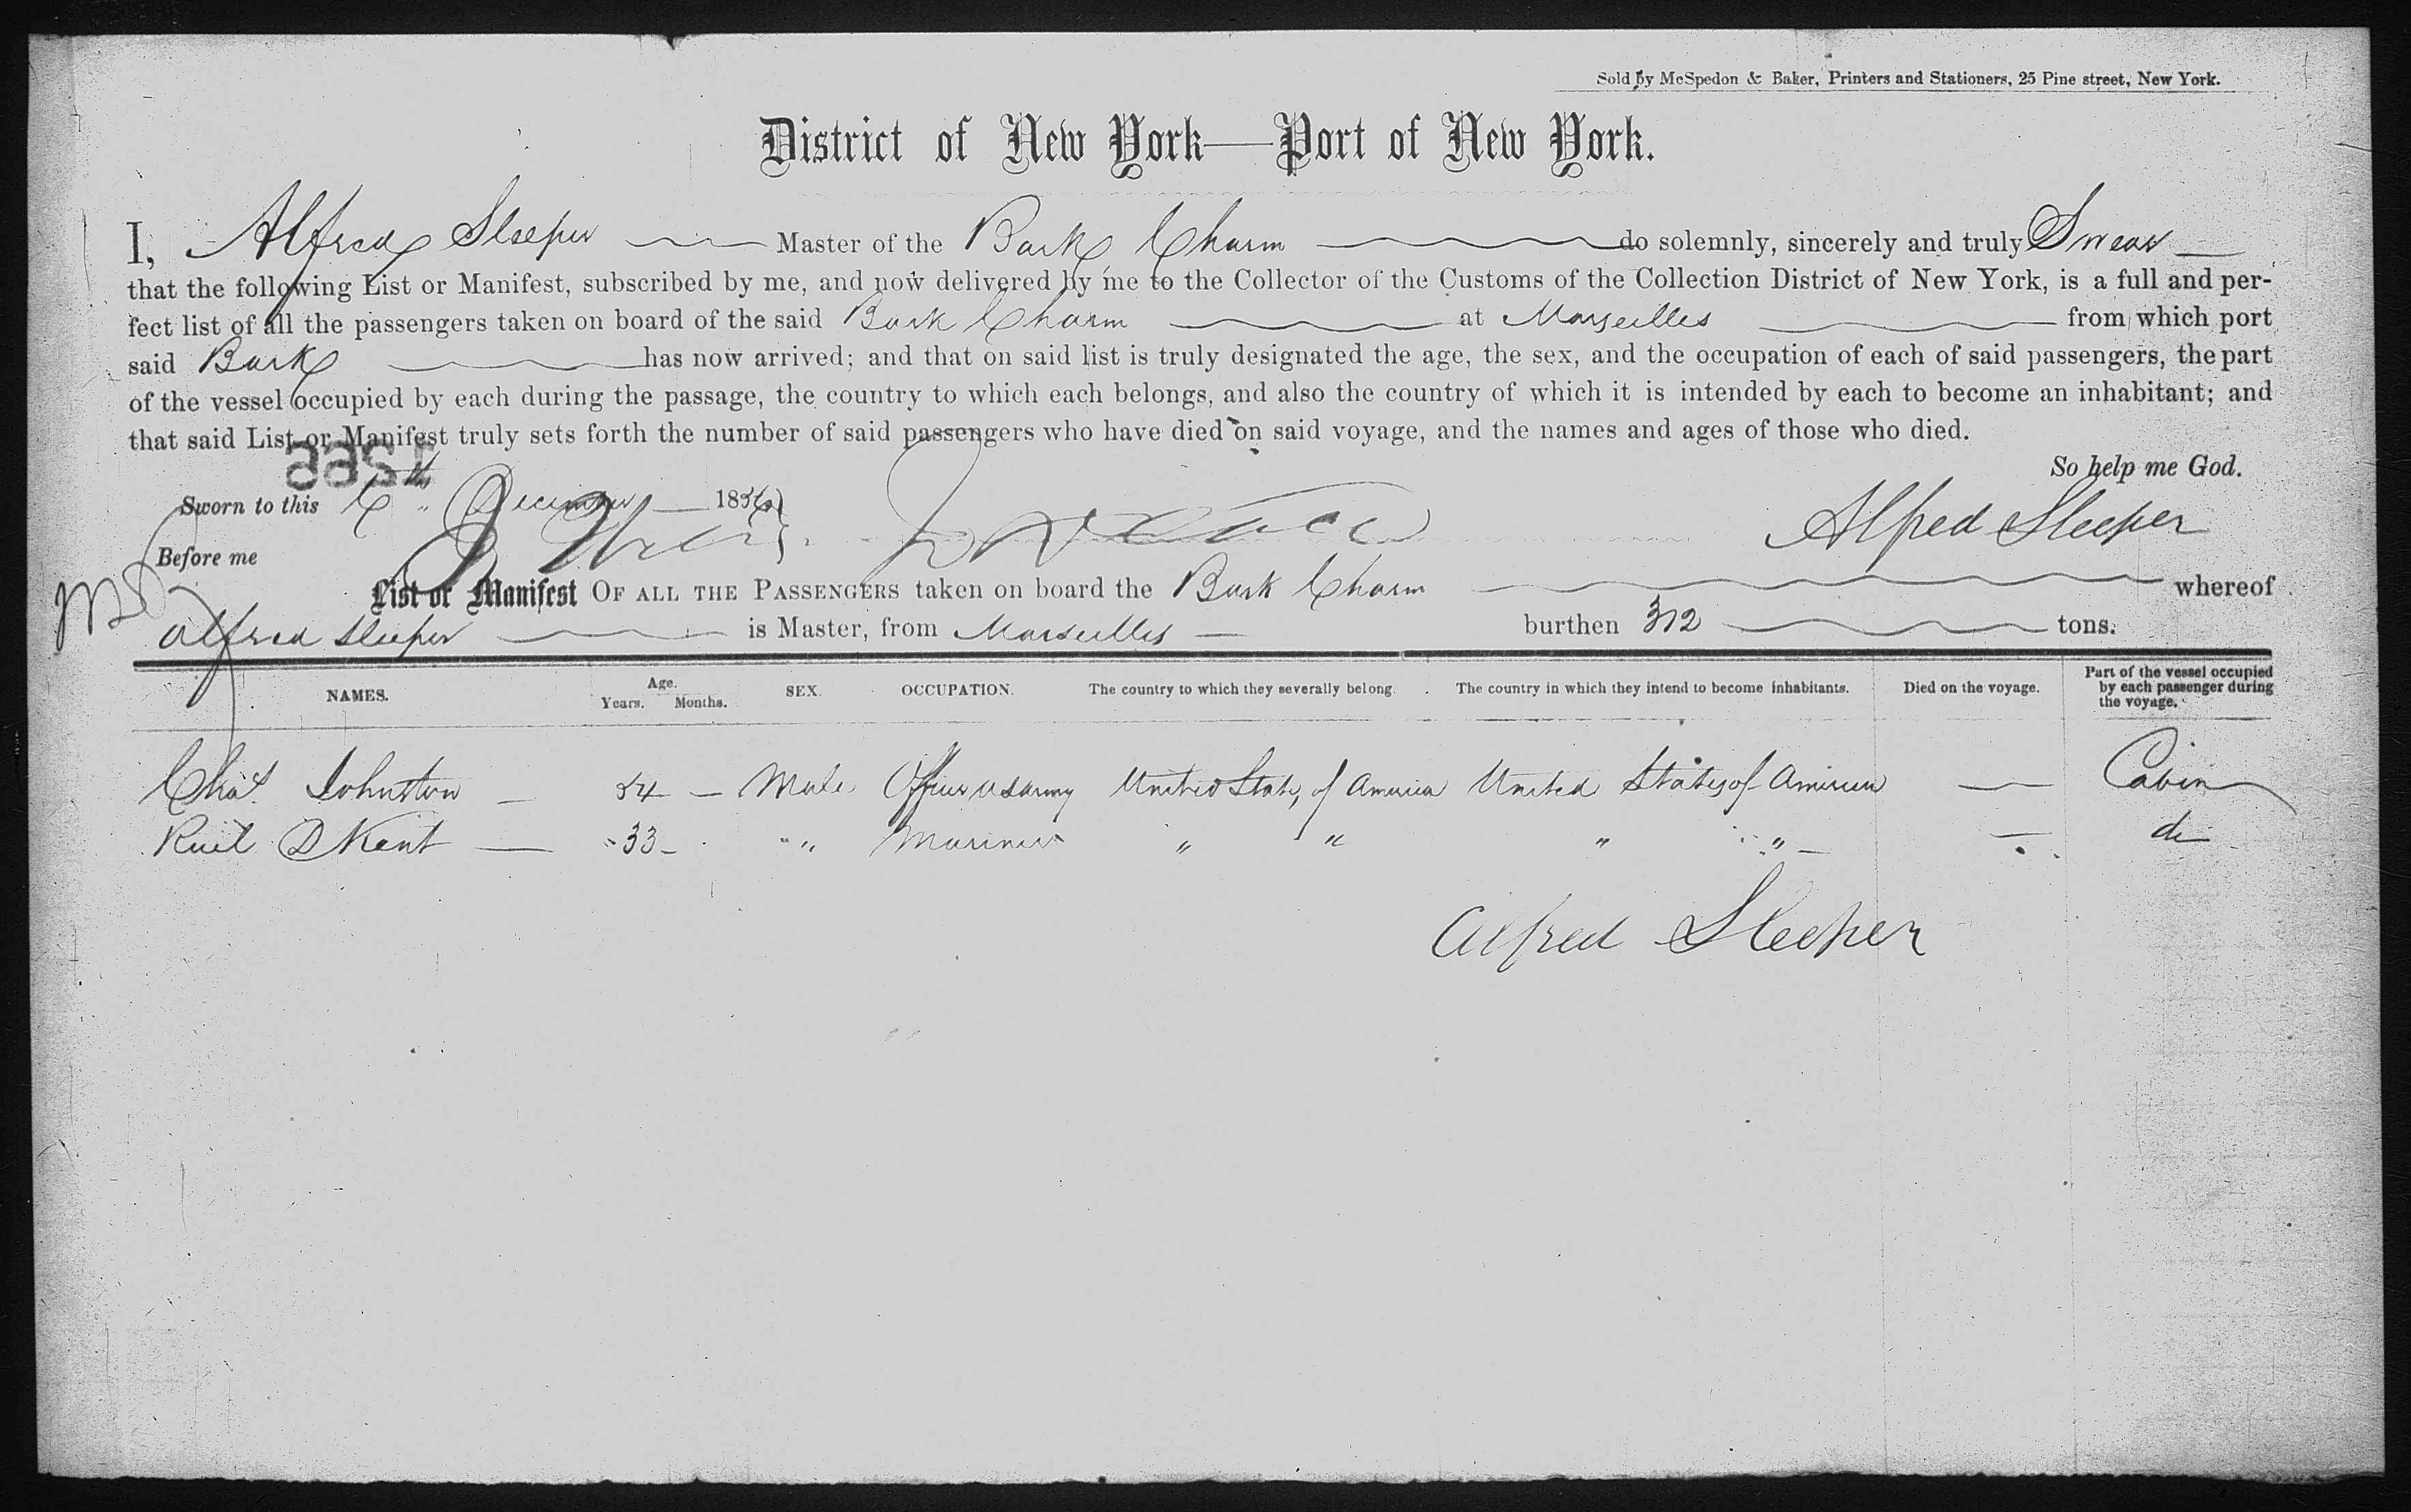 Sold by McSpedon & Baker, Printers and Stationers, 25 Pine street, New York.
District of New York—Port of New York.
I, Alfred Sleeper Master of the Bark Charm do solemnly, sincerely and truly Swear
that the following List or Manifest, subscribed by me, and now delivered by me to the Collector of the Customs of the Collection District of New York, is a full and per-
fect list of all the passengers taken on board of the said Bark Charm at Marseilles from which port
said Bark has now arrived; and that on said list is truly designated the age, the sex, and the occupation of each of said passengers, the part
of the vessel occupied by each during the passage, the country to which each belongs, and also the country of which it is intended by each to become an inhabitant; and
that said List or Manifest truly sets forth the number of said passengers who have died on said voyage, and the names and ages of those who died.
So help me God.
Sworn to this 6th December 1856
Alfred Sleeper
Before me
List or Manifest OF ALL THE PASSENGERS taken on board the Bark Charm whereof
Alfred Sleeper is Master, from Marseilles burthen tons.
NAMES. Age. Years. Months. SEX. OCCUPATION. The country to which they severally belong. The country in which they intend to become inhabitants. Died on the voyage. Part of the vessel occupied by each passenger during the voyage.
Chas Johnston — Male Officer US Army United States of America United States of America — Cabin
D Kent — 33 — " " Mariner " " " " — do
Alfred Sleeper